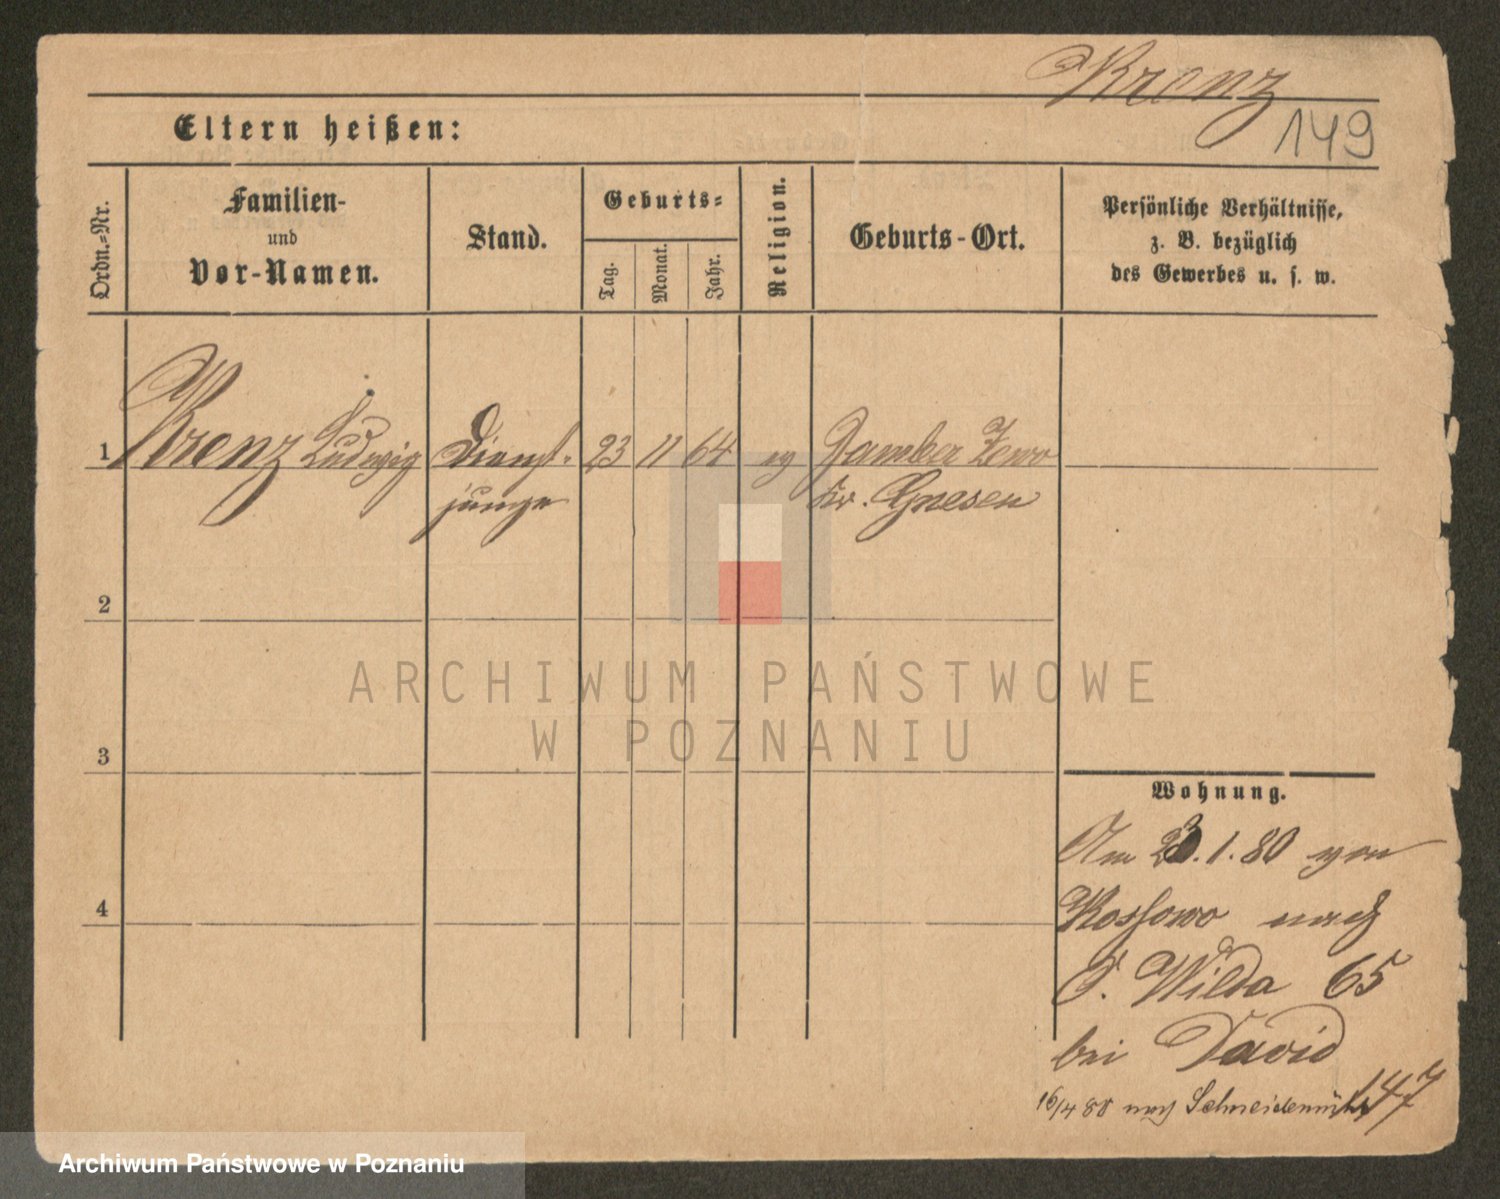 Krenz
149
Eltern heißen:
Ordn.-Nr.
Familien-
und
Vor-Namen.
Stand.
Geburts-
Tag.
Monat.
Jahr.
Religion.
Geburts-Ort.
Persönliche Verhältnisse,
z. B. bezüglich
des Gewerbes u. s. w.
1 Krenz Ludwig Dienst- 23 11 64 ev
junge Kr. Gnesen
2
3
4
Wohnung.
Am 23.1.80 von
Kossowo nach
O. Wilda 65
bei David
16/4 80 nach Schneidemühl
147
ARCHIWUM PAŃSTWOWE
W POZNANIU
Archiwum Państwowe w Poznaniu